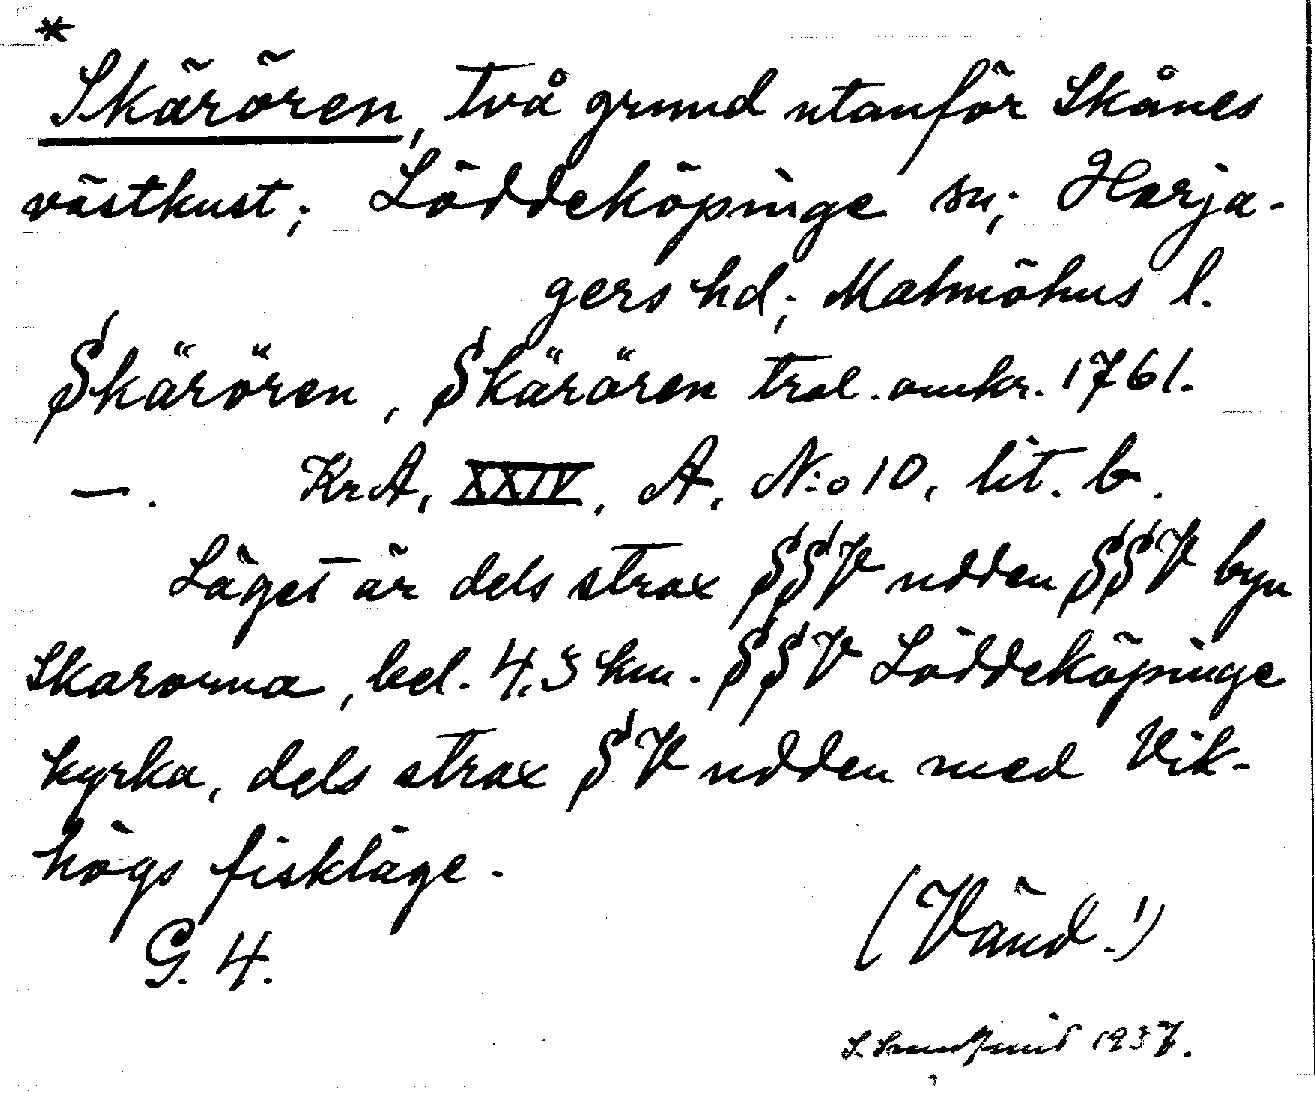 *
Skärören, två grund utanför Skånes
västkust; Löddeköpinge sn; Harja-
gers hd; Malmöhus l.
Skärören, Skärören trol. omkr. 1761.
—. KrA, XXIV, A, N:o 10, lit. b.
Läget är dels strax SSV udden SSV byn
Skarorna, bel. 4,5 km. SSV Löddeköpinge
kyrka, dels strax SV udden med Vik-
högs fiskläge.
G. 4.
(Vänd!)
1937.